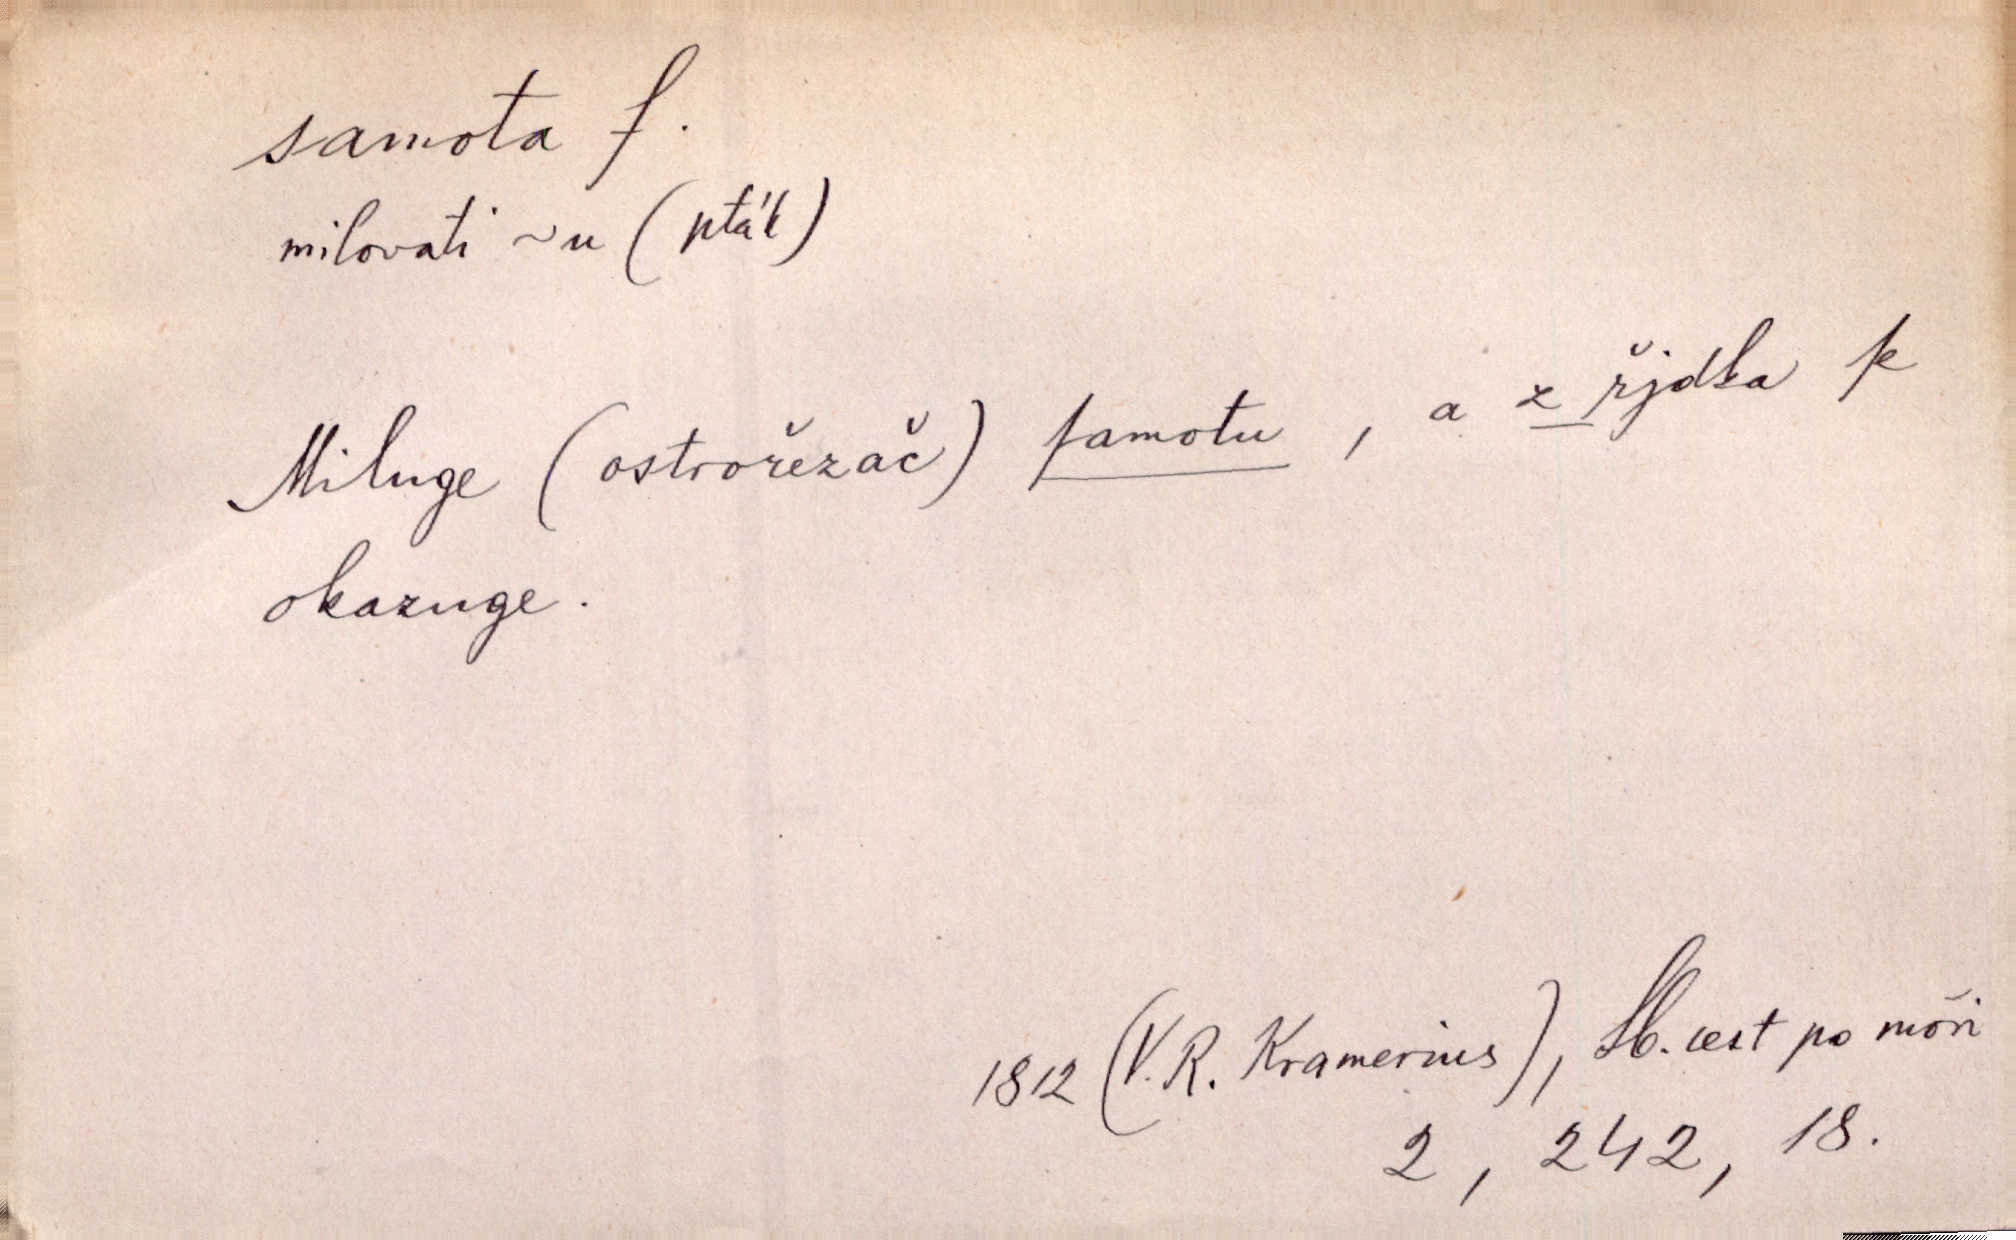 samota f.
milovati ~u (pták)
Miluge (ostrořezač) ſamotu, a z řjdka ſe
okazuge.
1812 (V. R. Kramerius), Sb. cest po moři
2, 242, 18.